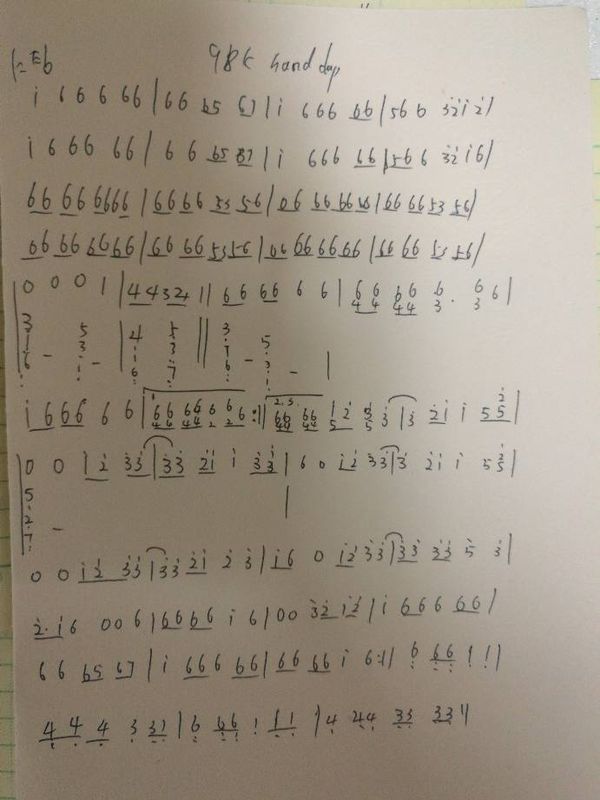 1=Eb 98K hand dap
i 6 6 6 66 | 66 65 67 | i 666 66 | 566 32i2 |
i 6 66 66 | 6 6 65 37 | i 666 66 | 566 32i6 |
66 66 6666 | 6666 53 56 | 06 66 66 56 | 66 66 53 56 |
06 66 6666 | 66 66 5356 | 06 66 6666 | 66 66 53 56 |
0 0 0 1 | 44 32 || 66 66 6 6 | 66 66 6 . 6 6 |
44 44 3 3
3 5 | 4 5 || 3 5
1 - 3 - | 1 3 || 1 - 3 - |
6 1 | 6 7 || 6 1
i 666 6 6 | 66 66 6 6 :|| 66 66 12 5 3 | 3 2i i 5 5 |
0 0 | 2 33 | 33 2i i 33 | 6 0 i2 33 | 3 2i i 5 5 |
5
2 -
7
0 0 i2 33 | 33 2i 2 3 | i6 0 i2 33 | 33 33 5 3 |
2. i6 006 | 66 66 i 6 | 00 32 i2 | i 666 66 |
6 6 65 67 | i 666 66 | 66 66 i 6 :|| 6 66 1 1 |
4 4 4 3 33 | 6 66 1 11 | 4 44 33 33 ||